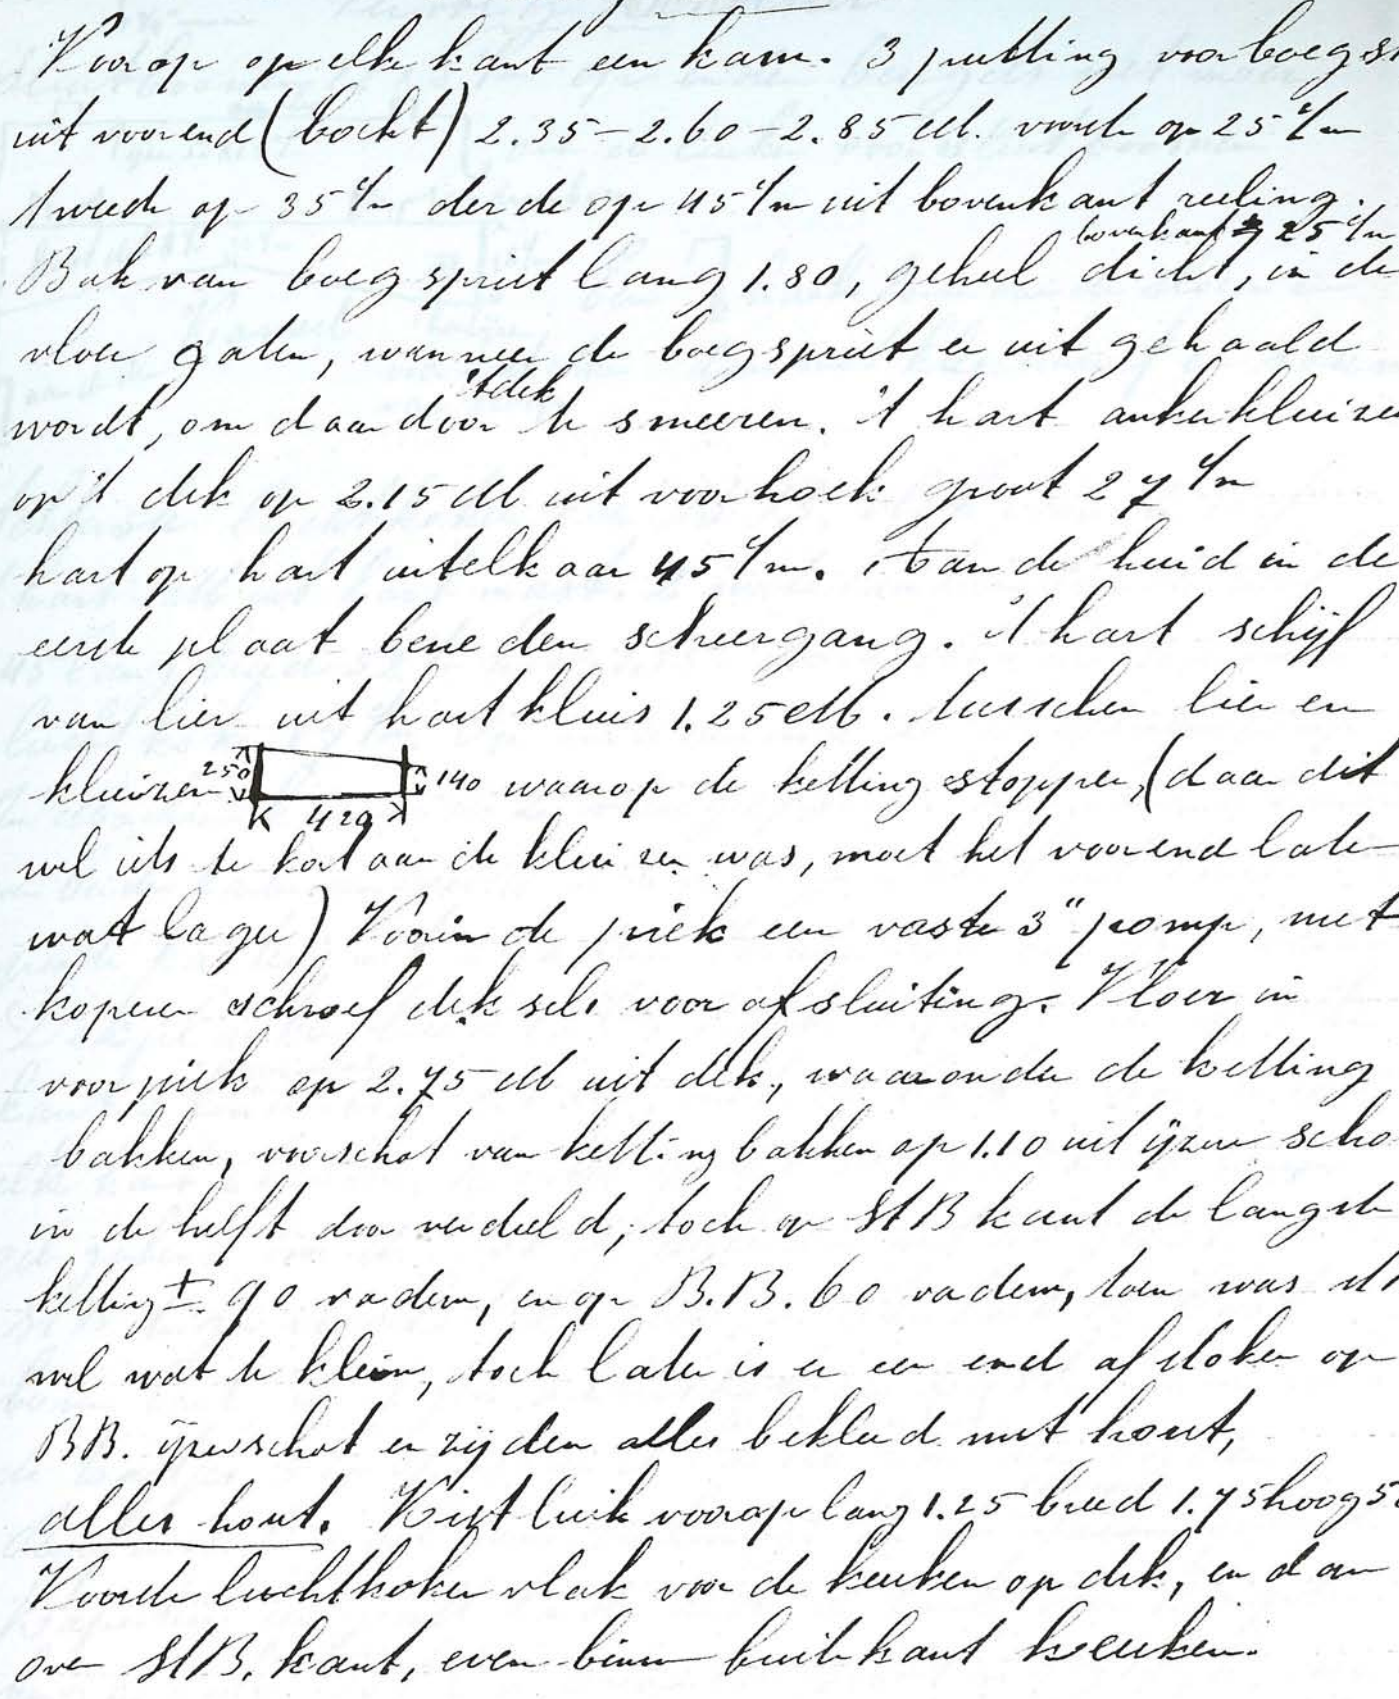 Voorop op elke kant een kam. 3 putting voor boegs
uit voorend (bocht) 2.35 – 2.60 – 2.85 M. voorste op 25 c/m
tweede op 35 c/m derde op 45 c/m uit bovenkant reeling.
bovenkant 25 c/m
Bak van boegspriet lang 1.80, geheel dicht, in de
vloer gaten, wanneer de boegspriet er uit gehaald
't dek
wordt, om daardoor te smeeren. 't hart ankerkluize
op 't dek op 2.15 M uit voorhoek groot 27 c/m
hart op hart uitelkaar 45 c/m. Aan de huid in de
eerste plaat beneden scheergang. 't hart schijf
van lier uit hart kluis 1.25 M. tusschen lier en
kluizen 250 420 140 waarop de ketting stopper, (daar dit
wel iets te kort aan de kluizen was, moet het voorend later
wat lager) Voorin de piek een vaste 3" pomp, met
koperen schroef deksels voor afsluiting. Vloer in
voorpiek op 2.75 M uit dek, waaronder de ketting
bakken, voorschot van ketting bakken op 1.10 uit ijzeren scho
in de helft door verdeeld, toch op StB kant de langste
ketting ± 90 vadem, en op B.B. 60 vadem, toen was
wel wat te klein, toch later is er een end afstoken op
BB. ijzerschot en zijden alles bekleed met hout,
alles hout. Kist luik voorop lang 1.25 breed 1.75 hoog 5
Voorste luchtkoker vlak voor de keuken op dek, en dan
over StB. kant, even binnen buitekant keuken.